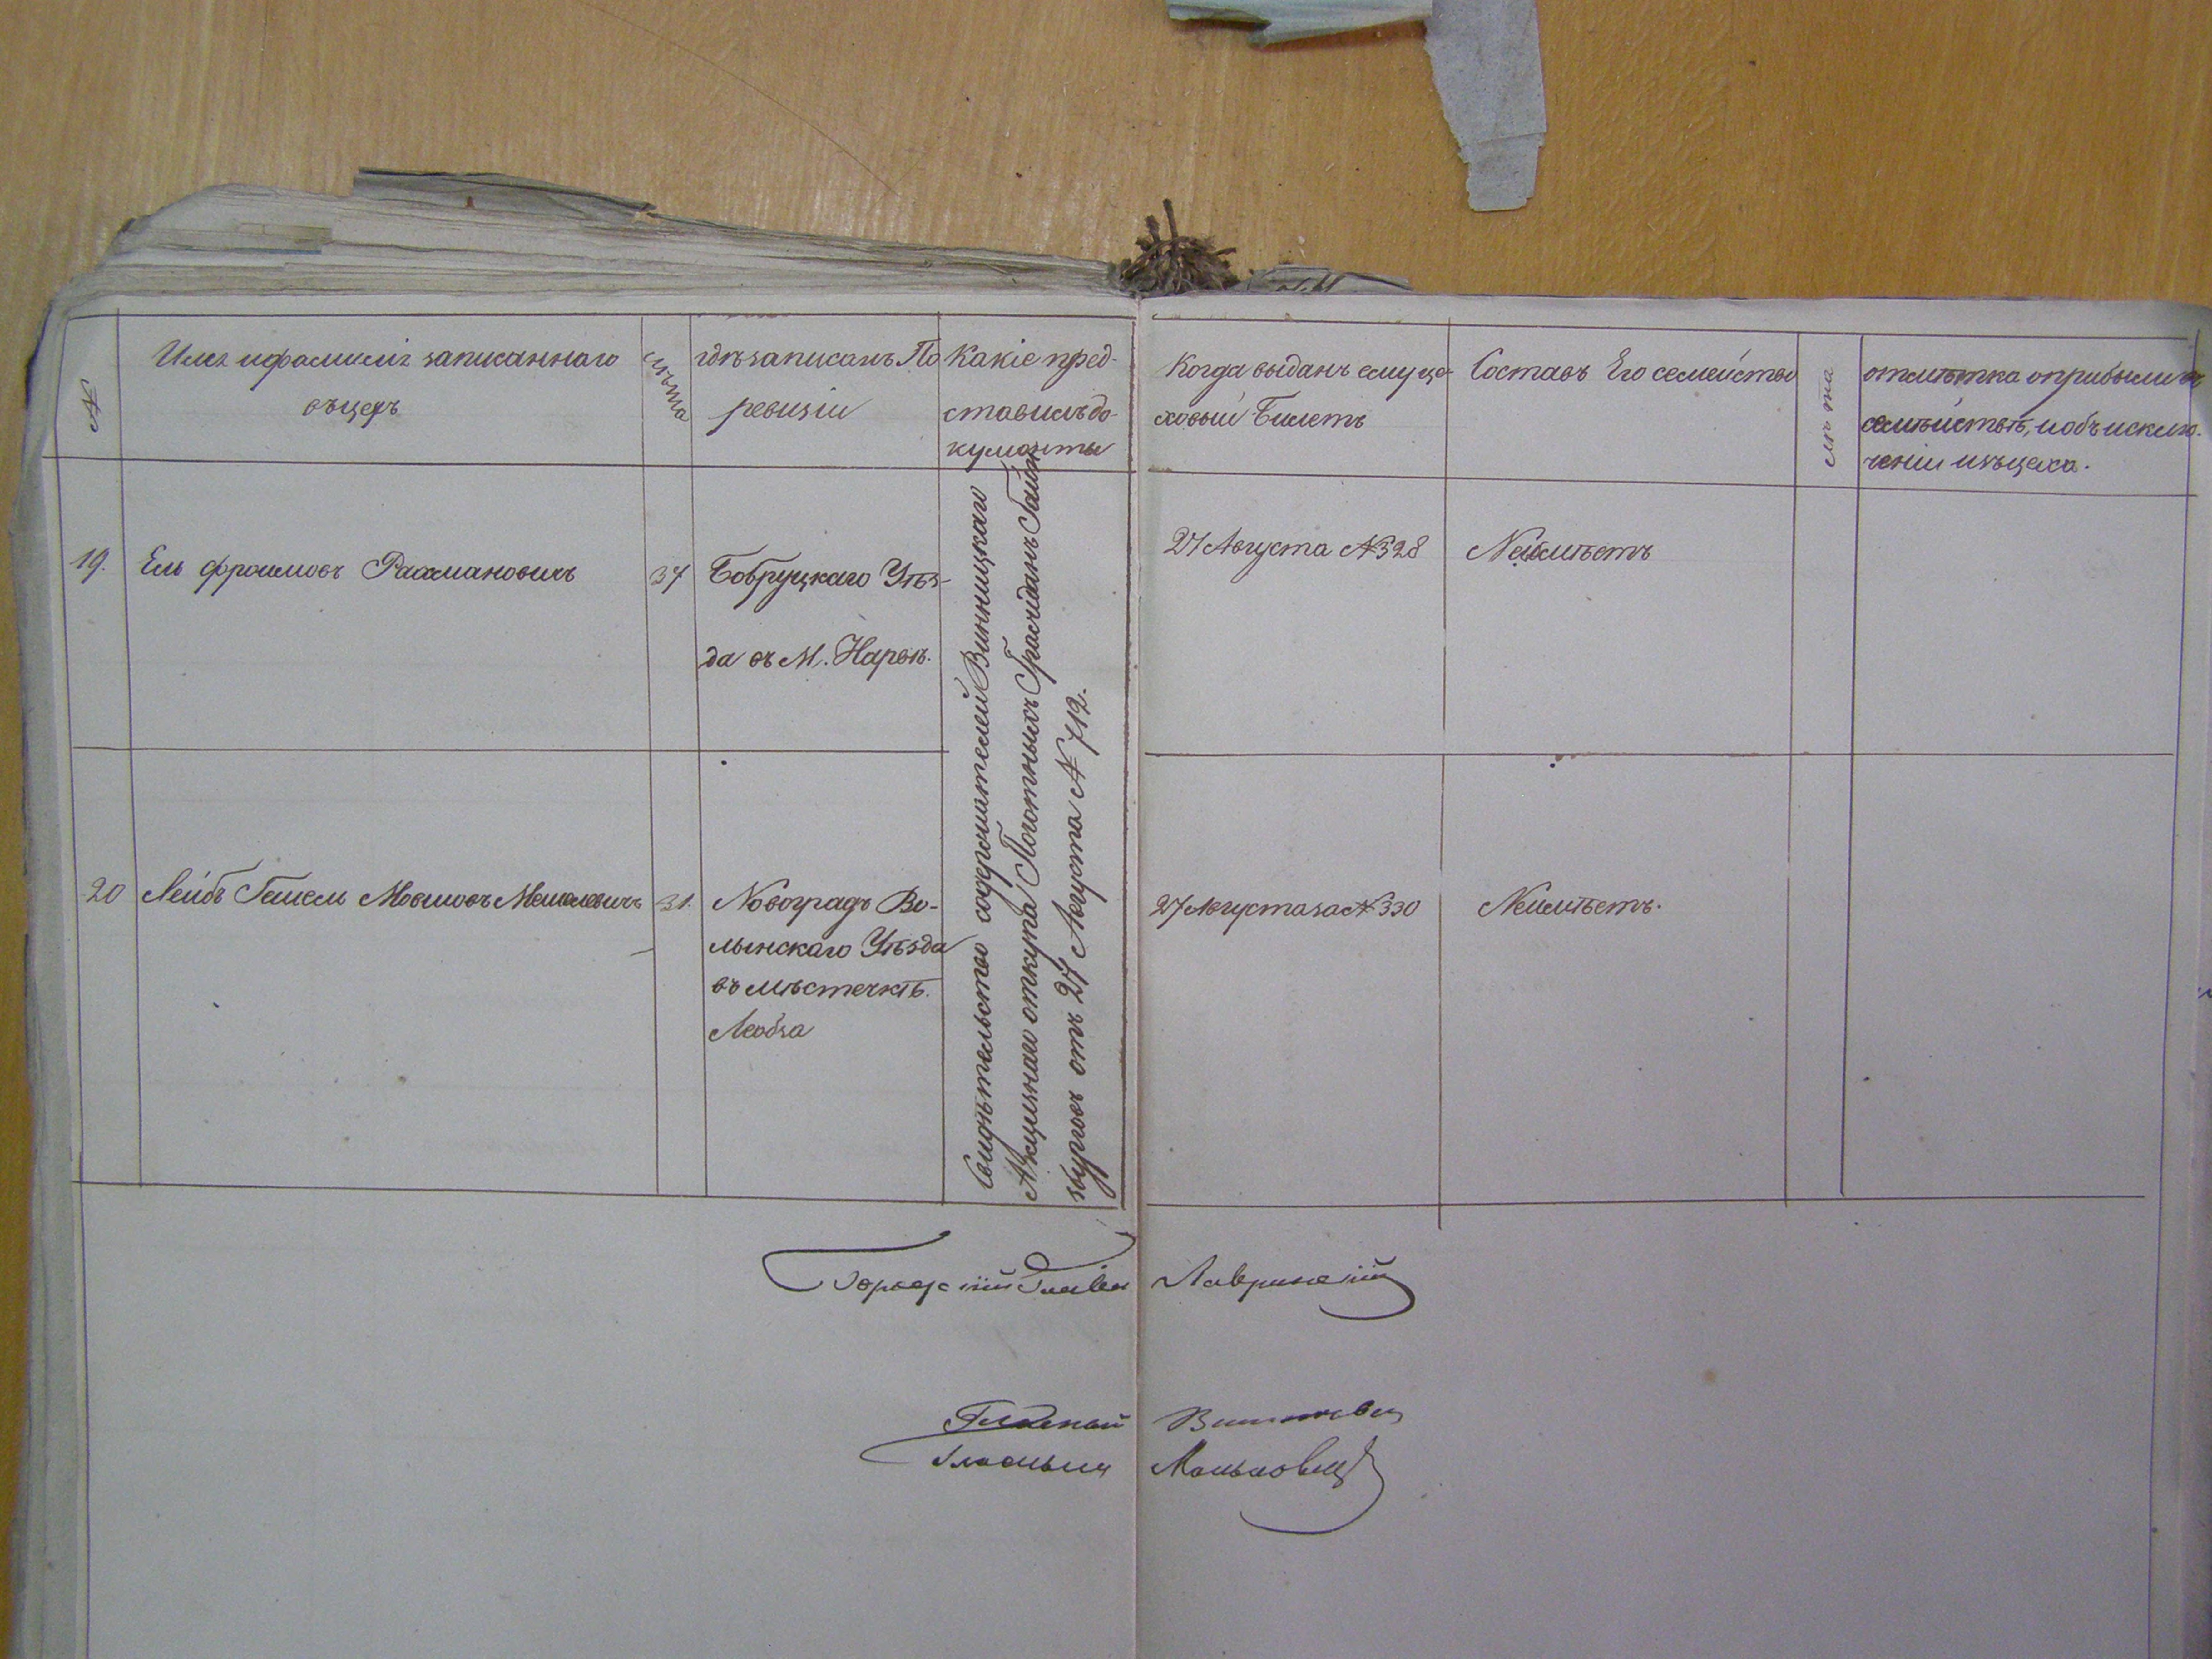 №
Имя и фамилія записаннаго
въ цехъ
Лѣта
гдѣ записанъ По
ревизіи
Какіе пред-
ставилъ до-
кументы
Когда выданъ ему це-
ховый Билетъ
Составъ Его семейства
лѣта
отмѣтка о прибыли въ
семѣйствѣ, и объ исклю-
ченіи изъ цеха.
19. Ель Фроимовъ Рахмановичъ
37
Бобруцкаго Уѣз-
да въ М. Наровл.
Свидѣтельство содержателей Винницкаго
Акцизнаго откупа Почотныхъ Гражданъ Гайн
збургъ отъ 27 Августа № 712.
27 Августа № 328
Неимѣетъ
20 Лейбъ Гешель Мовшовъ Мешелевичъ
31.
Новоградъ Во-
лынскаго Уѣзда
въ мѣстечкѣ.
27 Августа за № 330
Неимѣетъ.
Глава Лавринскій
Гласный
Гласный Маньковецкій